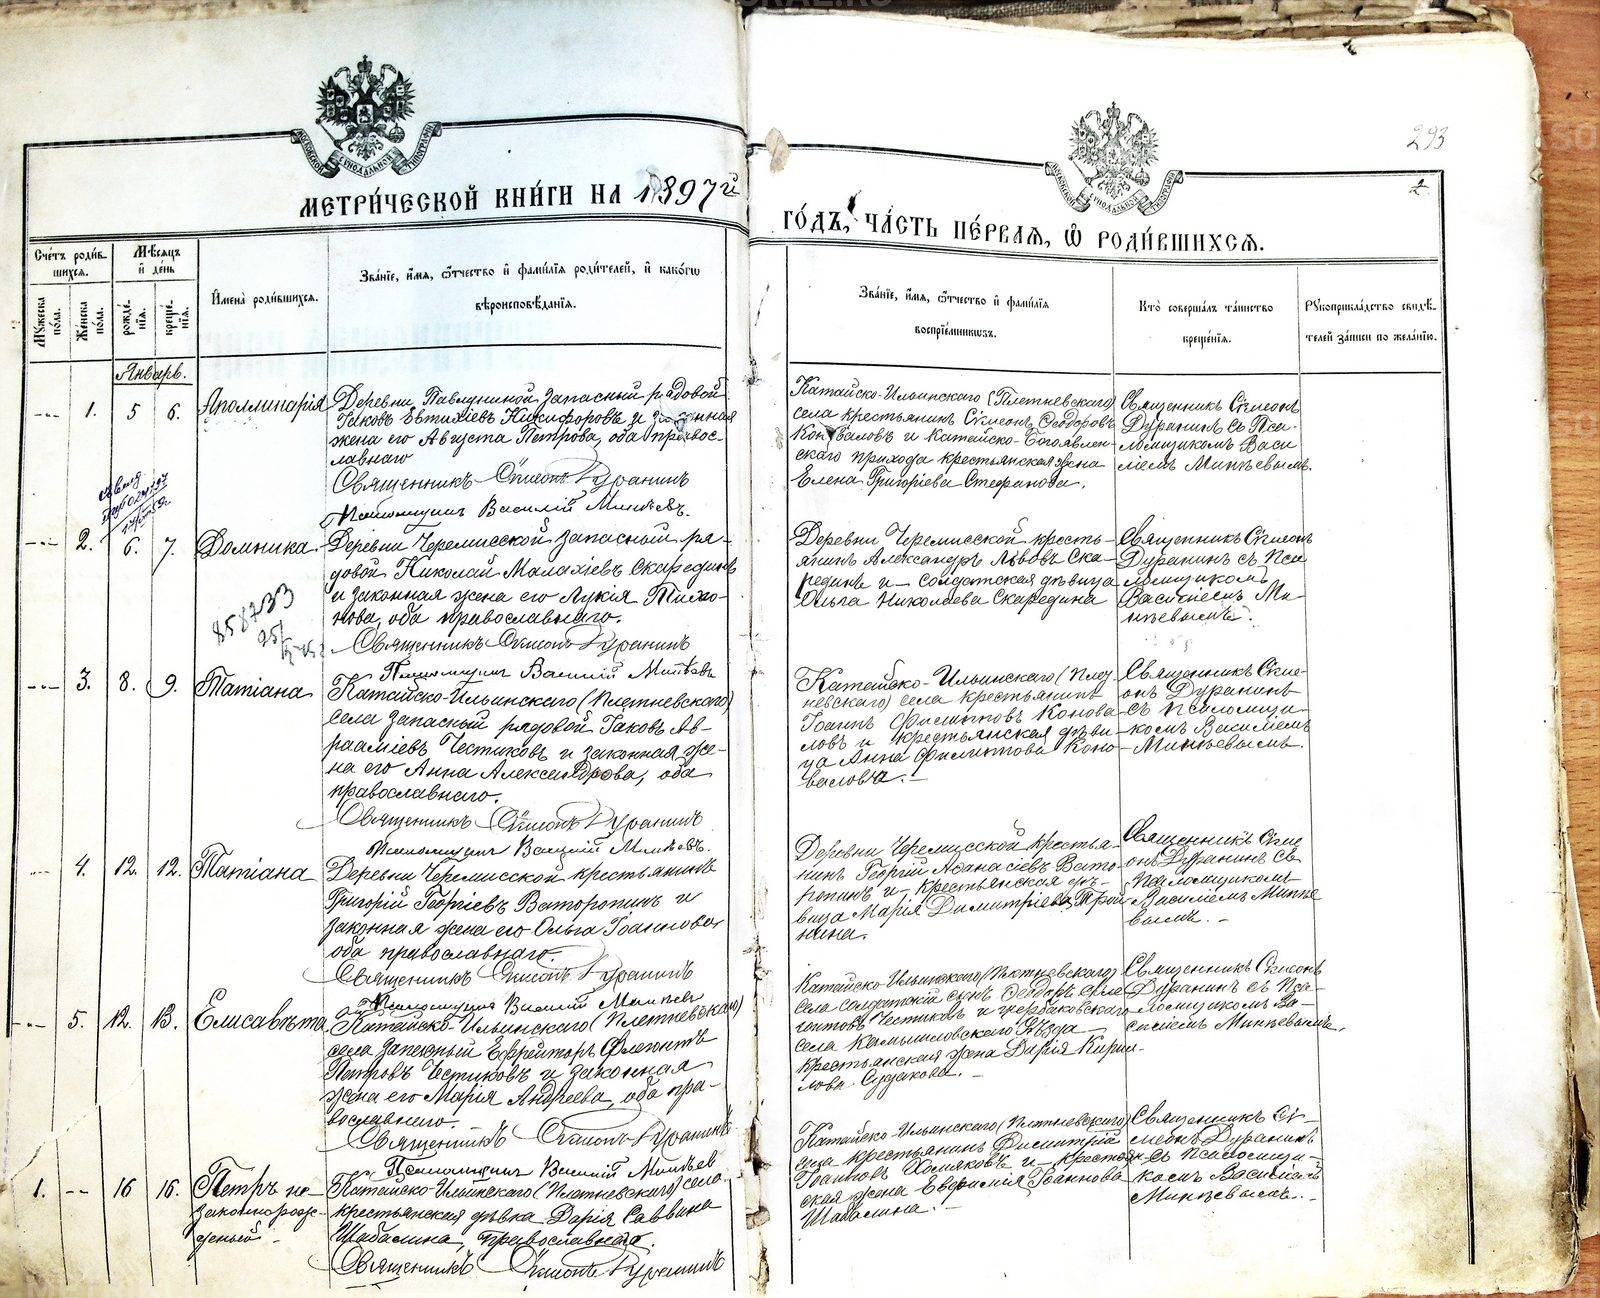 МЕТРИ́ЧЕСКОЙ КНИ́ГИ НА 1897й
ГО́ДЪ, ЧА́СТЬ ПЕ́РВАѦ, Ѡ҆ РОДИ́ВШИХСѦ.
293
2
МОСКОВСКОЙ СѴНОДАЛЬНОЙ ТИПОГРАФІИ
МОСКОВСКОЙ СѴНОДАЛЬНОЙ ТИПОГРАФІИ
Сче́тъ роди́вшихсѧ.
Мꙋ́жеска по́ла.
Же́нска по́ла.
Мѣ́сѧцъ и҆ де́нь
рожде́нїѧ.
креще́нїѧ.
И҆мена̀ роди́вшихсѧ.
Зва́нїе, и҆́мѧ, ѻ҆́тчество и҆ фами́лїѧ роди́телей, и҆ како́гѡ
вѣроисповѣ́данїѧ.
Зва́нїе, и҆́мѧ, ѻ҆́тчество и҆ фами́лїѧ
воспрїе́мникѡвъ.
Кто̀ соверша́лъ та́инство
креще́нїѧ.
Рꙋкоприкла́дство свидѣ́-
телей за́писи по жела́нїю.
Январь.
1. 5 6. Аполлинарія
Деревни Павлуниной запасный рядовой
Іаковъ Евтихіевъ Никифоровъ и законная
жена его Августа Петрова, оба правос-
лавнаго
Священникъ Сѵмеонъ Дуранинъ
Псаломщикъ Василій Минѣевъ.
Катайско-Ильинскаго (Плетневскаго)
села крестьянинъ Сѵмеонъ Ѳеодоровъ
Коноваловъ и Катайско-Богоявлен-
скаго прихода крестьянская жена
Елена Григоріева Стефанова.
Священникъ Сѵмеонъ
Дуранинъ съ Пса-
ломщикомъ Васи-
ліемъ Минѣевымъ.
2. 6. 7. Домника.
858733
Деревни Черемисской запасный ря-
довой Николай Малахіевъ Скарединъ
и законная жена его Лукія Тимо-
нова, оба православнаго.
Священникъ Сѵмеонъ Дуранинъ
Псаломщикъ Василій Минѣевъ
Деревни Черемисской кресть-
янинъ Александръ Львовъ Ска-
рединъ и солдатская дѣвица
Ольга Николаева Скаредина
Священникъ Сѵмеонъ
Дуранинъ съ Пса-
ломщикомъ
Василіемъ Ми-
нѣевымъ.
3. 8. 9. Татіана
Катайско-Ильинскаго (Плетневскаго)
села запасный рядовой Іаковъ Ав-
рааміевъ Честиковъ и законная же-
на его Анна Александрова, оба
православнаго.
Священникъ Сѵмеонъ Дуранинъ
Псаломщикъ Василій Минѣевъ.
Катайско-Ильинскаго (Плет-
невскаго) села крестьянинъ
Іоаннъ Филипповъ Конова-
ловъ и крестьянская дѣви-
ца Анна Филиппова Коно-
валова.
Священникъ Сѵме-
онъ Дуранинъ
съ псаломщи-
комъ Василіемъ
Минѣевымъ.
4. 12. 12. Татіана
Деревни Черемисской крестьянинъ
Григорій Георгіевъ Ваторопинъ и
законная жена его Ольга Іоаннова
оба православнаго.
Священникъ Сѵмеонъ Дуранинъ
Псаломщикъ Василій Минѣевъ
Деревни Черемисской крестья-
нинъ Георгій Аѳанасіевъ Вато-
ропинъ и крестьянская дѣ-
вица Марія Димитріева
нина.
Священникъ Сѵме-
онъ Дуранинъ съ
Псаломщикомъ
Василіемъ Минѣе-
вымъ.
5. 12. 13. Елисавѣта
Катайско-Ильинскаго (Плетневскаго)
села запасный Ефрейторъ Флегонтъ
Петровъ Честиковъ и законная
жена его Марія Андреева, оба пра-
вославнаго.
Священникъ Сѵмеонъ Дуранинъ
Псаломщикъ Василій Минѣевъ
Катайско-Ильинскаго (Плетневскаго)
села солдатскій сынъ Ѳеодоръ Фле-
гонтовъ Честиковъ и Щербаковскаго
села Камышловскаго уѣзда
крестьянская жена Дарія Кирил-
лова Судакова.
Священникъ Сѵмеонъ
Дуранинъ съ Пса-
ломщикомъ Ва-
силіемъ Минѣевымъ.
1. 16 16. Петръ не-
законорож-
деный
Катайско-Ильинскаго (Плетневскаго) села
крестьянская дѣвка Дарія Саввина
Шабалина, православнаго.
Священникъ Сѵмеонъ Дуранинъ
Катайско-Ильинскаго (Плетневскаго)
села крестьянинъ Димитрій
Іоанновъ Хомяковъ и крестьян-
ская жена Евфимія Іоаннова
Шабалина.
Священникъ Сѵ-
меонъ Дуранинъ
съ Псаломщи-
комъ Василіемъ
Минѣевымъ.